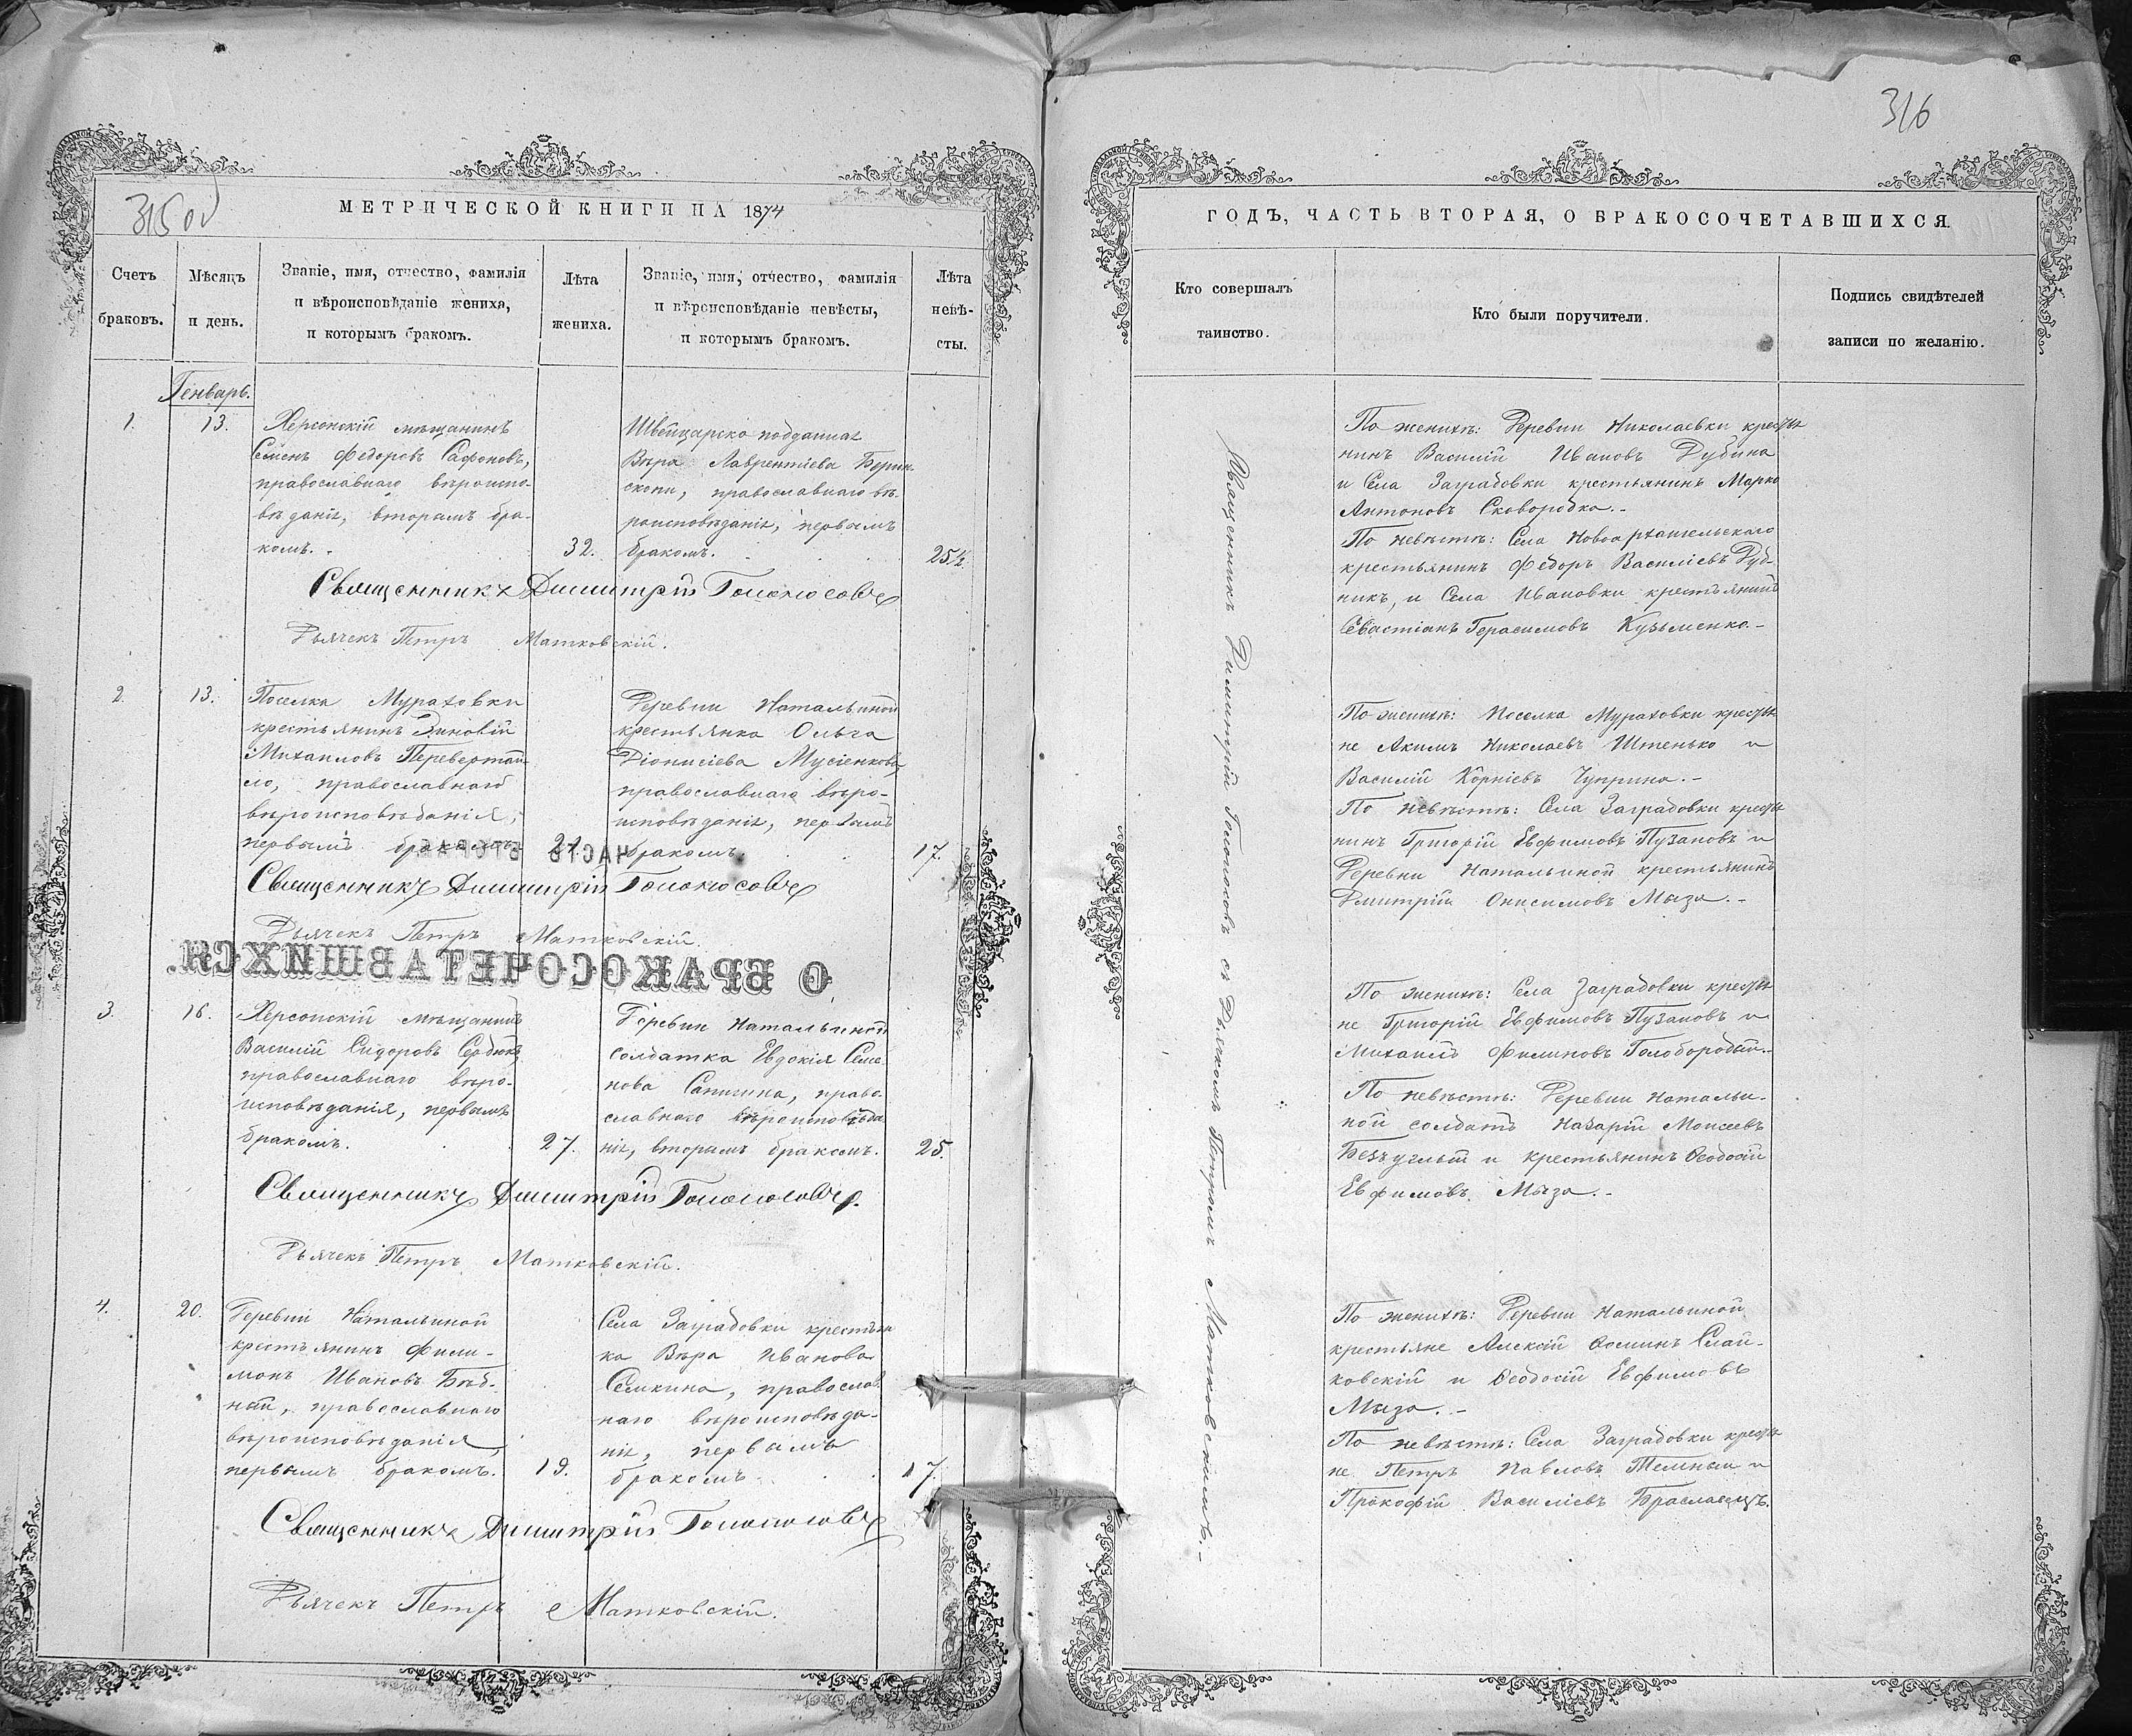 315 об
МЕТРИЧЕСКОЙ КНИГИ НА 1874
Счетъ
браковъ.
Мѣсяцъ
и день.
Званіе, имя, отчество, фамилія
и вѣроисповѣданіе жениха,
и которымъ бракомъ.
Лѣта
жениха.
Званіе, имя, отчество, фамилія
и вѣроисповѣданіе невѣсты,
и которымъ бракомъ.
Лѣта
невѣ-
сты.
Генварь.
1.
13.
Херсонскій мѣщанинъ
Семенъ Федоровъ Сафоновъ,
православнаго вѣроиспо-
вѣданія, вторымъ бра-
комъ.
32.
Швейцарско подданная
Вѣра Лаврентіева
православнаго вѣ-
роисповѣданія, первымъ
бракомъ.
25½.
Священникъ Димитрій Голоносовъ
Дьячекъ Петръ Матковскій.
2.
13.
Поселка Мураховки
крестьянинъ Зиновій
Михаиловъ Перевертай-
ло, православнаго
вѣроисповѣданія,
первымъ бракомъ.
21.
Деревни Натальиной
крестьянка Ольга
Діонисіева Мусіенкова,
православнаго вѣро-
исповѣданія, первымъ
бракомъ.
17.
Священникъ Димитрій Голоносовъ
Дьячекъ Петръ Матковскій.
О БРАКОСОЧЕТАВШИХСЯ.
3.
16.
Херсонскій мѣщанинъ
Василій Сидоровъ Сердюкъ,
православнаго вѣро-
исповѣданія, первымъ
бракомъ.
27.
Деревни Натальиной
солдатка Евдокія Семе-
нова Сапигина, право-
славнаго вѣроисповѣда-
нія, вторымъ бракомъ.
25.
Священникъ Димитрій Голоносовъ.
Дьячекъ Петръ Матковскій.
4.
20.
Деревни Натальиной
крестьянинъ Фили-
монъ Ивановъ Бѣд-
ный, православнаго
вѣроисповѣданія,
первымъ бракомъ.
19.
Села Заградовки крестьян
ка Вѣра Иванова
Семкина, православ-
наго вѣроисповѣда-
нія, первымъ
бракомъ.
17.
Священникъ Димитрій Голоносовъ
Дьячекъ Петръ Матковскій.
316
ГОДЪ, ЧАСТЬ ВТОРАЯ, О БРАКОСОЧЕТАВШИХСЯ.
Кто совершалъ
таинство.
Кто были поручители.
Подпись свидѣтелей
записи по желанію.
Священникъ Димитрій Голоносовъ съ Дьячкомъ Петромъ Матковскимъ.-
По женихѣ: Деревни Николаевки крестья
нинъ Василій Ивановъ Дубина
и Села Заградовки крестьянинъ Марко
Антоновъ Сковородка.-
По невѣстѣ: Села Новоархангельскаго
крестьянинъ Федоръ Василіевъ Дуд-
никъ, и Села Ивановки крестьянинъ
Севастіанъ Герасимовъ Кузьменко.-
По женихѣ: Поселка Мураховки крестья
не Акимъ Николаевъ Штенько и
Василій Корніевъ Чуприна.-
По невѣстѣ: Села Заградовки крестья
нинъ Григорій Евфимовъ Пузановъ и
Деревни Натальиной крестьянинъ
Дмитрій Онисимовъ Мыза.-
По женихѣ: Села Заградовки крестья
не Григорій Евфимовъ Пузановъ и
Михаилъ Филиповъ Голобородый.-
По невѣстѣ: Деревни Натальи-
ной солдатъ Назарій Моисеевъ
Безъуглый и крестьянинъ Ѳеодосій
Евфимовъ Мыза.-
По женихѣ: Деревни Натальиной
крестьяне Алексій Ѳоминъ Слай-
ковскій и Ѳеодосій Евфимовъ
Мыза.-
По невѣстѣ: Села Заградовки крестья
не Петръ Павловъ Темный и
Прокофій Василіевъ Браславецъ.